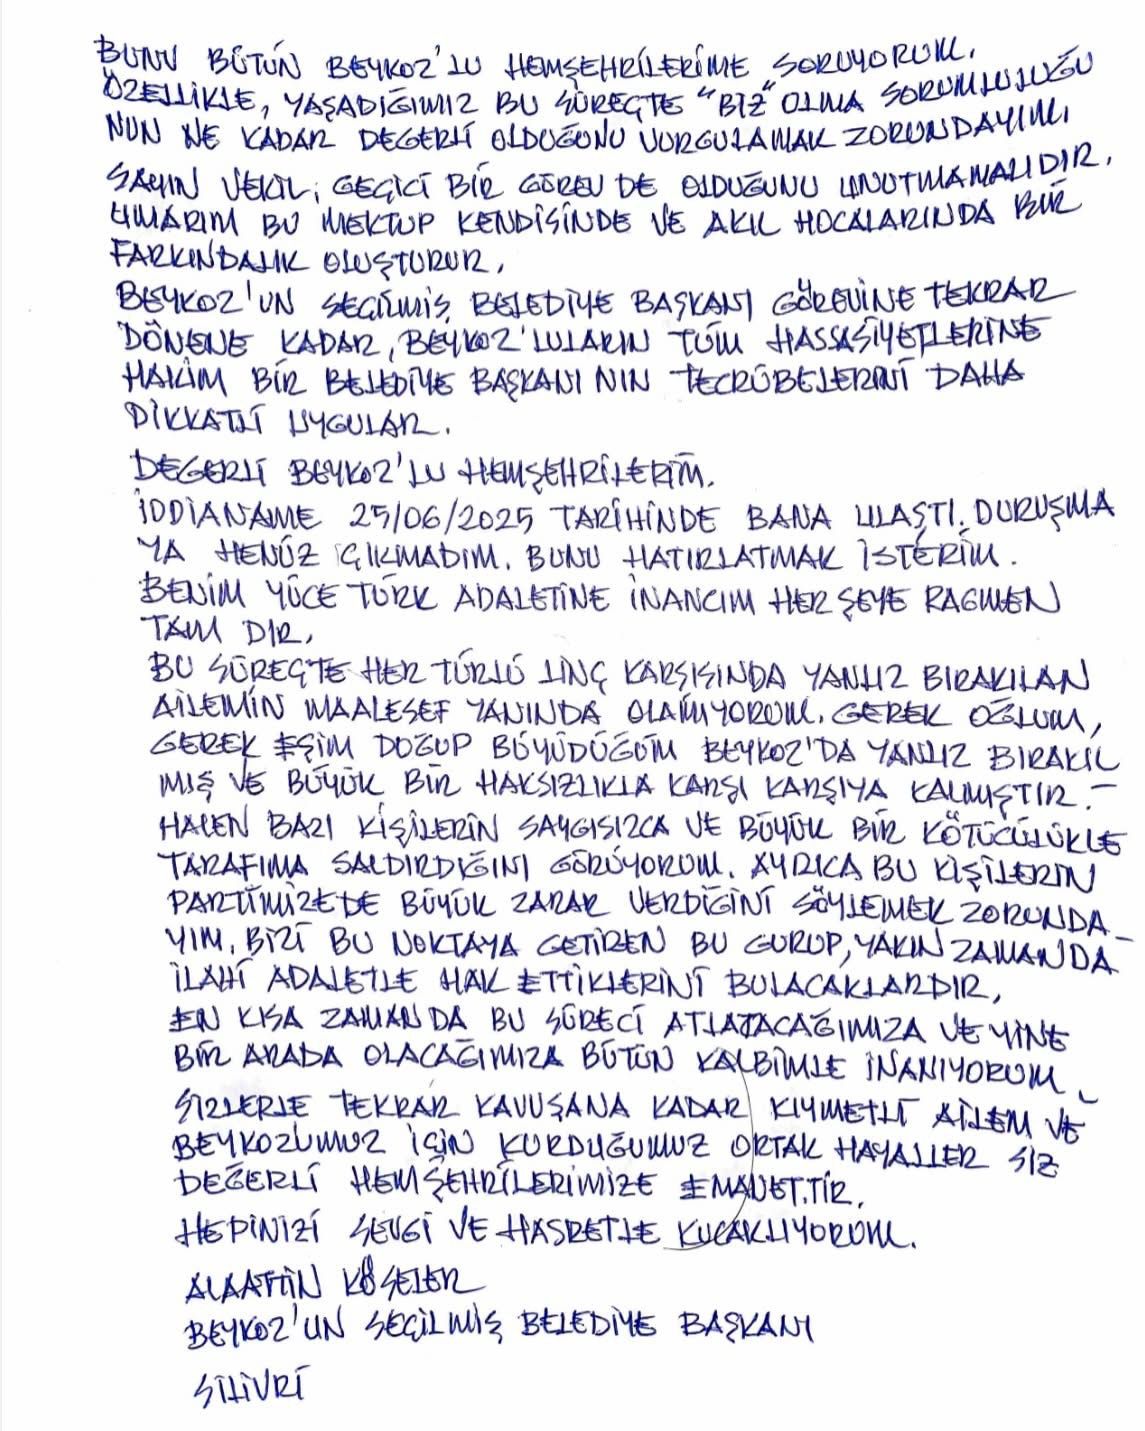 BUNU BÜTÜN BEYKOZ'LU HEMŞEHRİLERİME SORUYORUM.
ÖZELLİKLE, YAŞADIĞIMIZ BU SÜREÇTE "BİZ" OLMA SORUMLULUĞU
NUN NE KADAR DEĞERLİ OLDUĞUNU VURGULAMAK ZORUNDAYIM.
SAYIN VEKİL, GEÇİCİ BİR GÖREV DE OLDUĞUNU UNUTMAMALIDIR.
UMARIM BU MEKTUP KENDİSİNDE VE AKIL HOCALARINDA BİR
FARKINDALIK OLUŞTURUR.
BEYKOZ'UN SEÇİLMİŞ BELEDİYE BAŞKANI GÖREVİNE TEKRAR
DÖNENE KADAR, BEYKOZ'LULARIN TÜM HASSASİYETLERİNE
HAKİM BİR BELEDİYE BAŞKANI NIN TECRÜBELERİNİ DAHA
DİKKATLİ UYGULAR.
DEĞERLİ BEYKOZ'LU HEMŞEHRİLERİM.
İDDİANAME 25/06/2025 TARİHİNDE BANA ULAŞTI. DURUŞMA
YA HENÜZ ÇIKMADIM. BUNU HATIRLATMAK İSTERİM.
BENİM YÜCE TÜRK ADALETİNE İNANCIM HER ŞEYE RAGMEN
TAM DIR.
BU SÜREÇTE HER TÜRLÜ LİNÇ KARŞISINDA YANLIZ BIRAKILAN
AİLEMİN MAALESEF YANINDA OLAMIYORUM. GEREK OĞLUM,
GEREK EŞİM DOĞUP BÜYÜDÜĞÜM BEYKOZ'DA YANLIZ BIRAKIL
MIŞ VE BÜYÜK BİR HAKSIZLIKLA KARŞI KARŞIYA KALMIŞTIR.-
HALEN BAZI KİŞİLERİN SAYGISIZCA VE BÜYÜK BİR KÖTÜCÜLÜKLE
TARAFIMA SALDIRDIĞINI GÖRÜYORUM. AYRICA BU KİŞİLERİN
PARTİMİZEDE BÜYÜK ZARAR VERDİĞİNİ SÖYLEMEK ZORUNDA
YIM. BİZİ BU NOKTAYA GETİREN BU GURUP, YAKIN ZAMANDA-
İLAHİ ADALETLE HAK ETTİKLERİNİ BULACAKLARDIR.
EN KISA ZAMANDA BU SÜRECİ ATLATACAĞIMIZA VE YİNE
BİR ARADA OLACAĞIMIZA BÜTÜN KALBİMLE İNANIYORUM.
SİZLERLE TEKRAR KAVUŞANA KADAR KIYMETLİ AİLEM VE
BEYKOZUMUZ İÇİN KURDUĞUMUZ ORTAK HAYALLER SİZ
DEĞERLİ HEMŞEHRİLERİMİZE EMANET.TİR.
HEPİNİZİ SEVGİ VE HASRETLE KUCAKLIYORUM.
ALAATTİN KÖSELER
BEYKOZ'UN SEÇİLMİŞ BELEDİYE BAŞKANI
SİLİVRİ